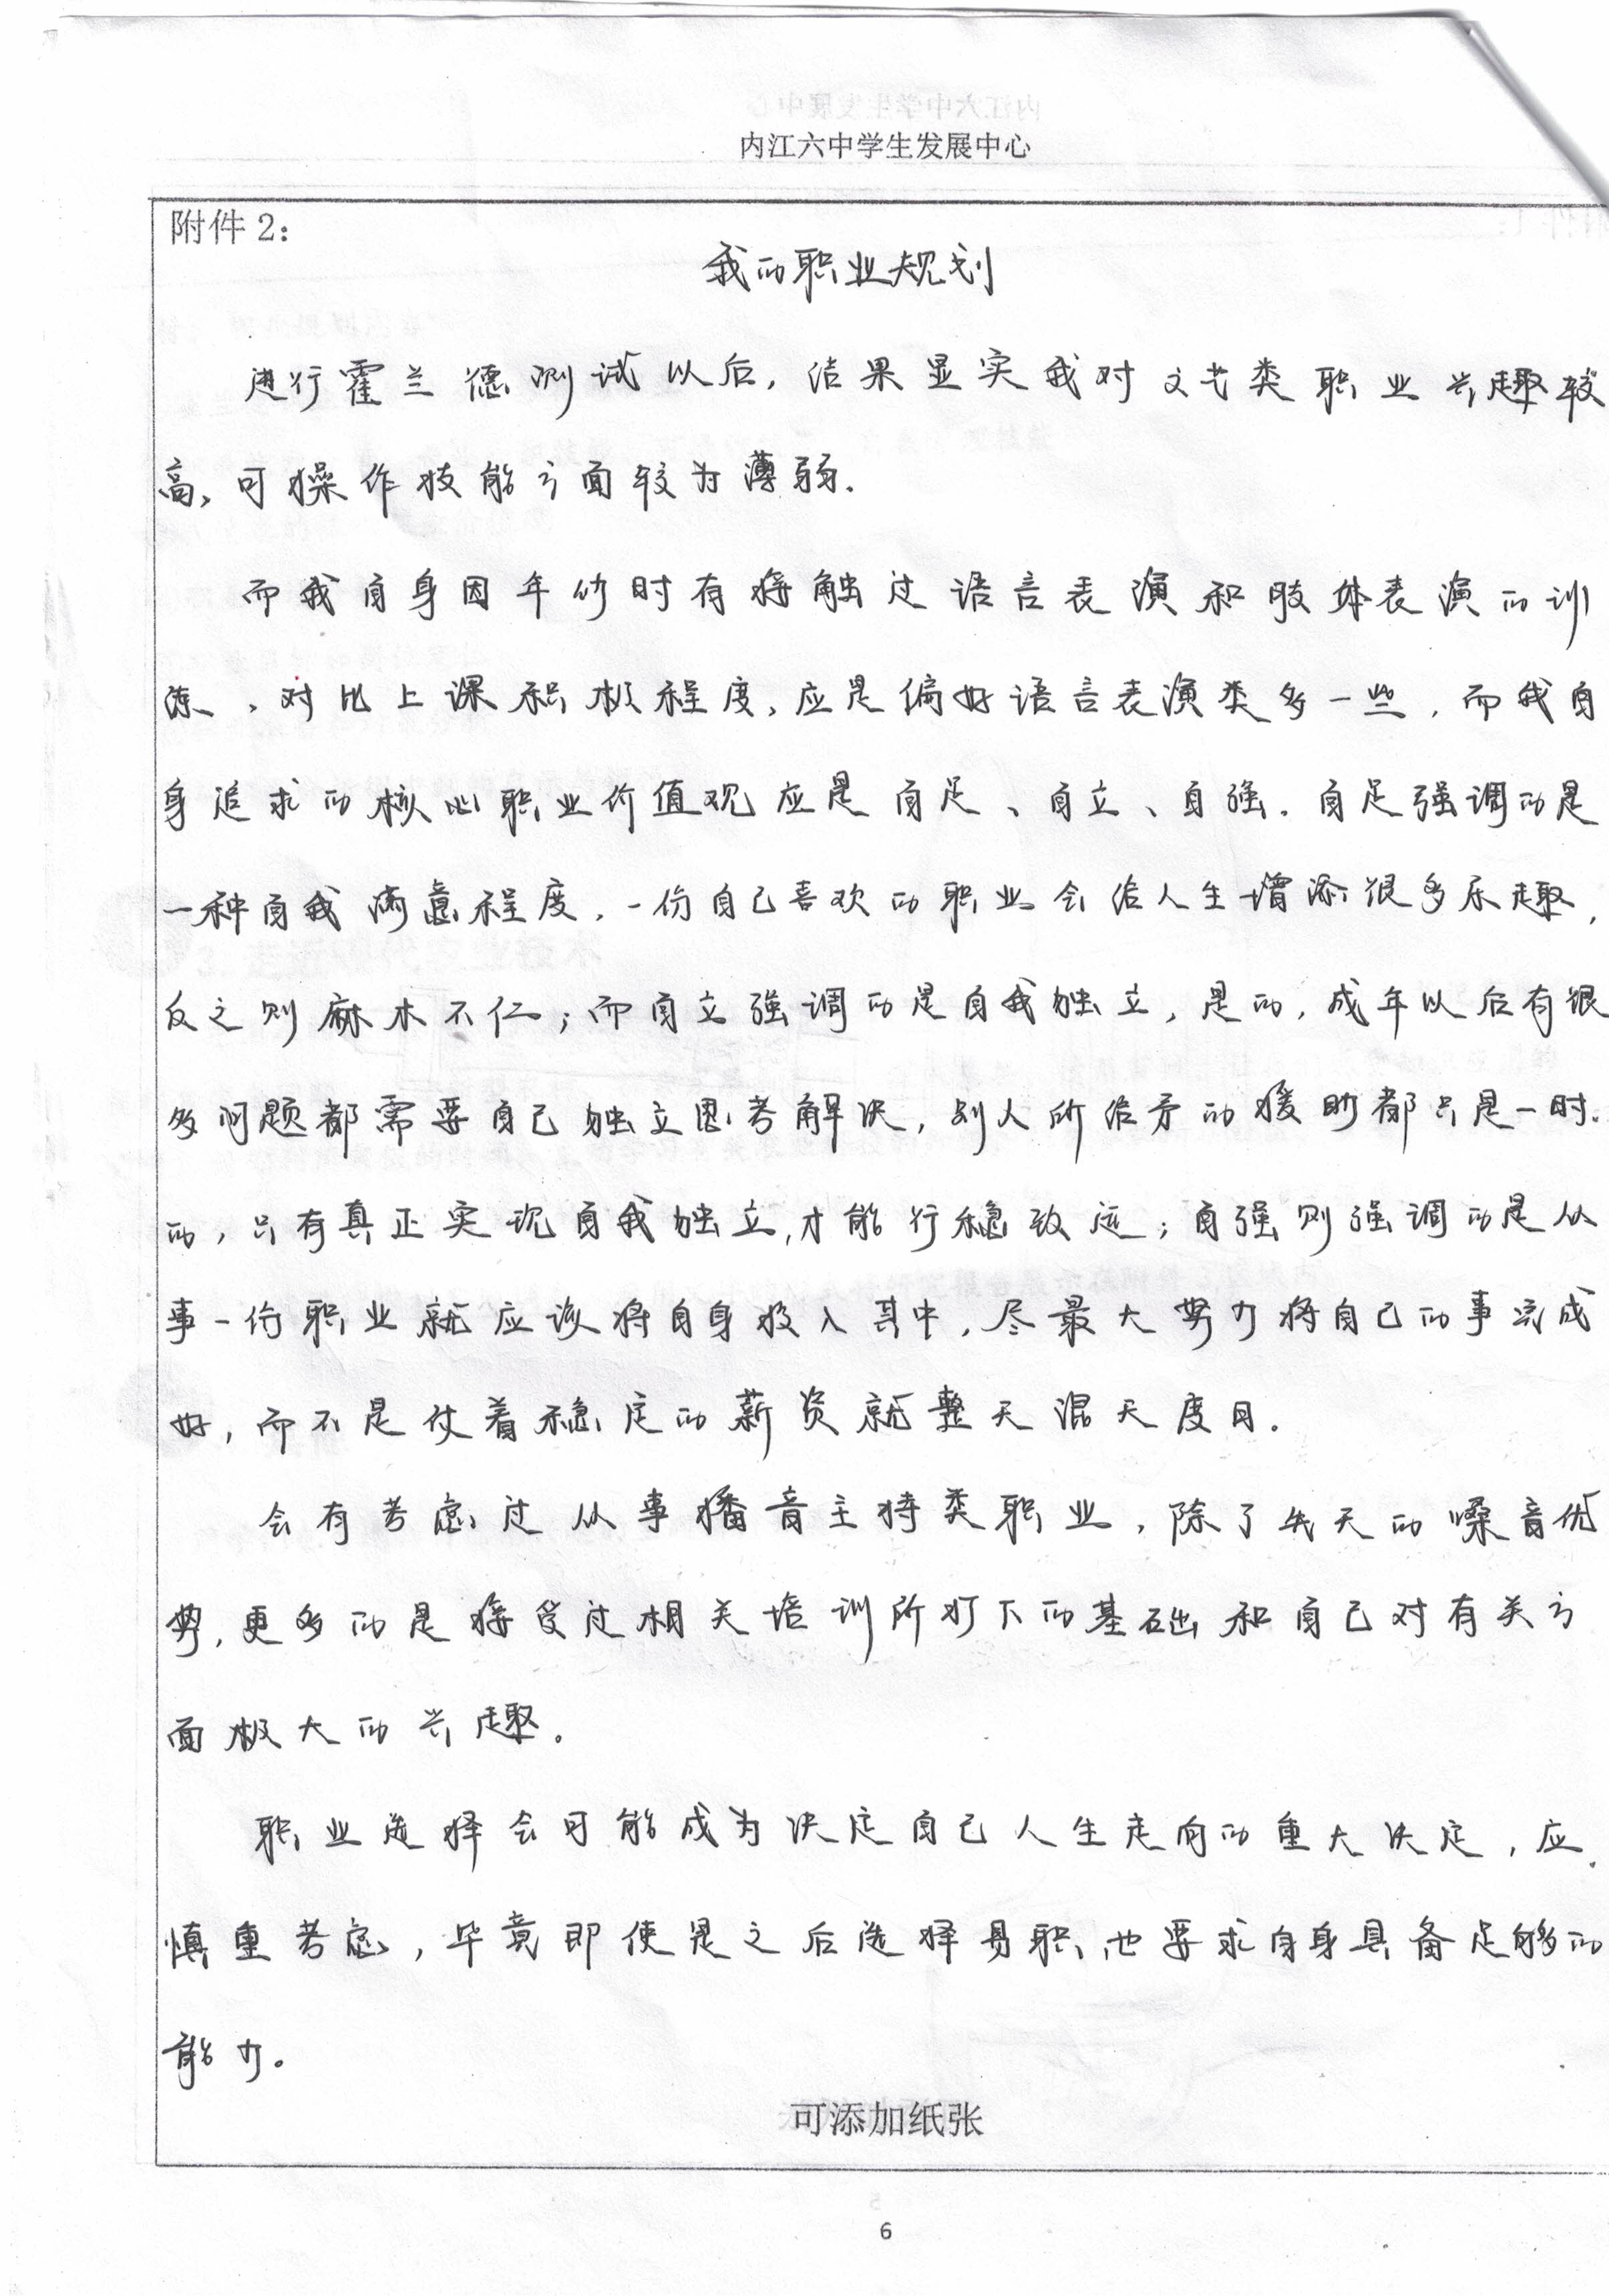 内江六中学生发展中心
附件2：
我的职业规划
进行霍兰德测试以后，结果显实我对文艺类职业兴趣较
高，可操作技能方面较为薄弱．
而我自身因年幼时有接触过语言表演和肢体表演的训
练，对比上课积极程度，应是偏好语言表演类多一些，而我自
身追求的核心职业价值观应是自足、自立、自强．自足强调的是
一种自我满意程度．一份自己喜欢的职业会给人生增添很多乐趣，
反之则麻木不仁；而自立强调的是自我独立，是的，成年以后有很
多问题都需要自己独立思考解决，别人所给予的援助都只是一时
的，只有真正实现自我独立，才能行稳致远；自强则强调的是从
事一份职业就应该将自身投入其中，尽最大努力将自己的事完成
好，而不是仗着稳定的薪资就整天混天度日．
会有考虑过从事播音主持类职业，除了先天的嗓音优
势，更多的是接受过相关培训所打下的基础和自己对有关方
面极大的兴趣。
职业选择会可能成为决定自己人生走向的重大决定，应
慎重考虑，毕竟即使是之后选择易职，也要求自身具备足够的
能力。
可添加纸张
6